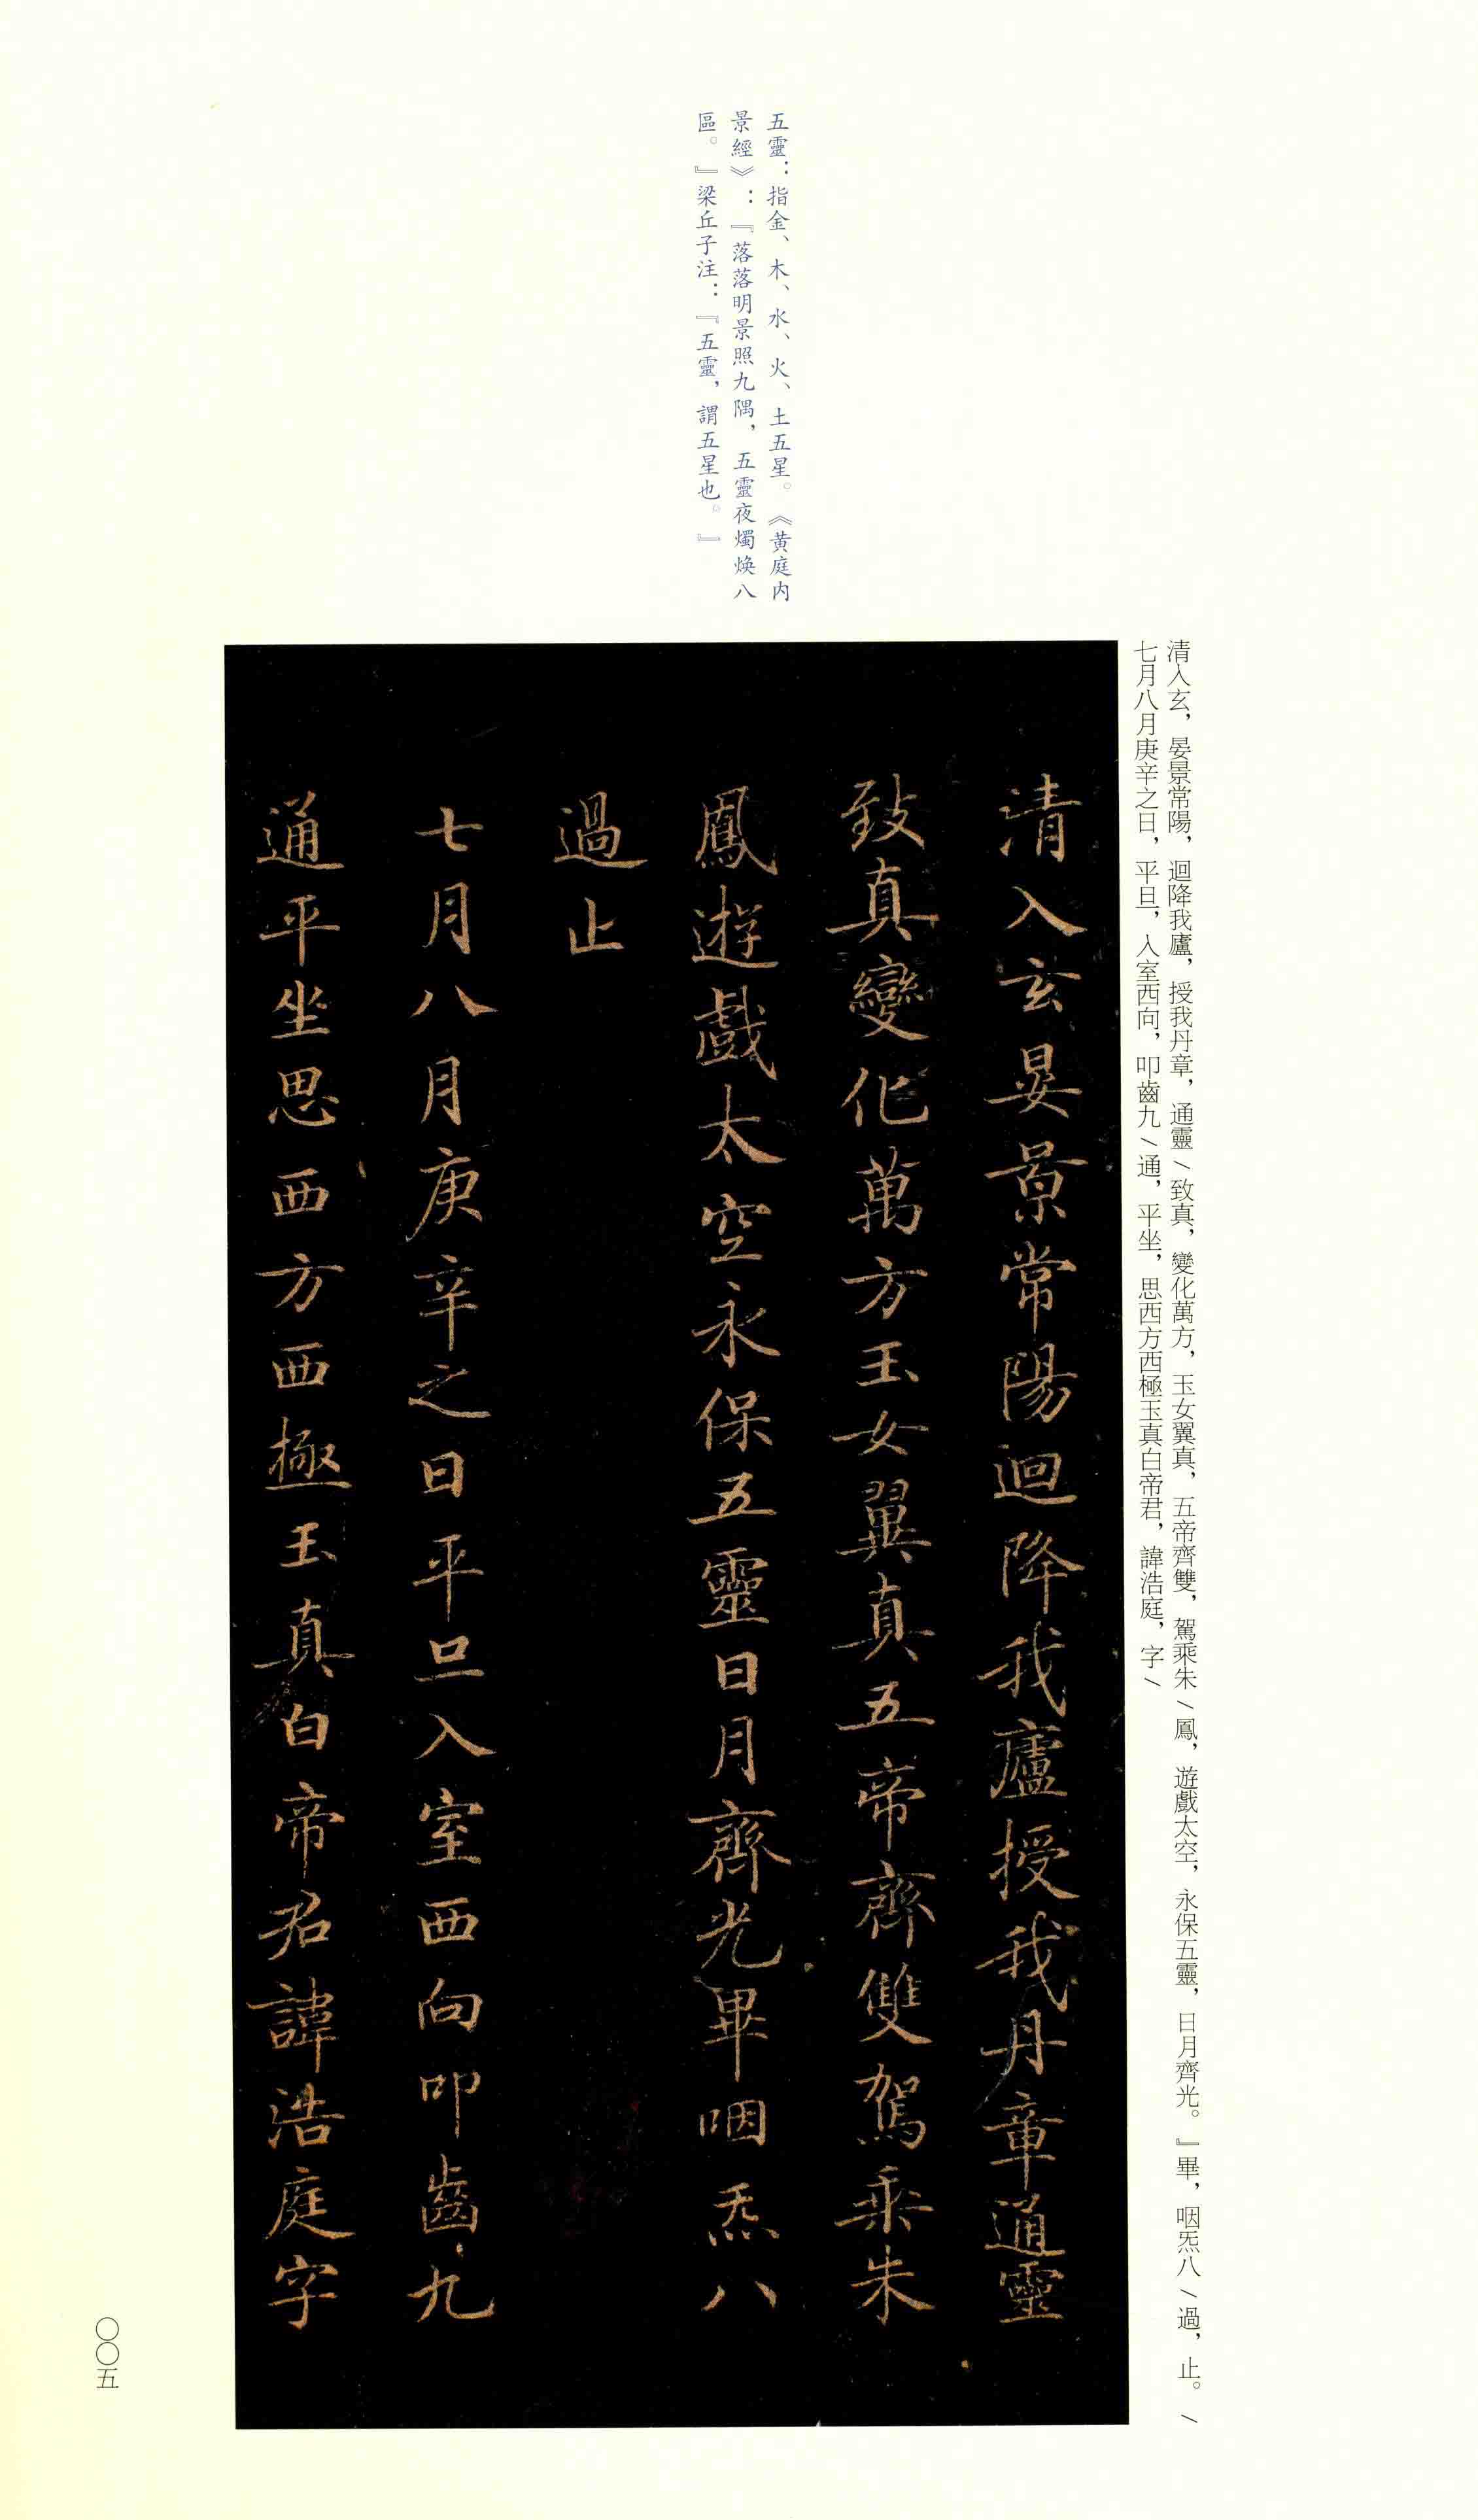 五靈：指金、木、水、火、土五星。《黃庭内
景經》：『落落明景照九隅，五靈夜燭焕八
區。』梁丘子注：『五靈，謂五星也。』
清入玄，晏景常陽，迴降我廬，授我丹章，通靈\致真，變化萬方，玉女翼真，五帝齊雙，駕乘朱\鳳，遊戲太空，永保五靈，日月齊光。』畢，咽炁八\過，止。\
七月八月庚辛之日，平旦，入室西向，叩齒九\通，平坐，思西方西極玉真白帝君，諱浩庭，字\
清入玄晏景常陽迴降我廬授我丹章通靈
致真變化萬方玉女翼真五帝齊雙駕乘朱
鳳遊戲太空永保五靈日月齊光畢咽炁八
過止
七月八月庚辛之日平旦入室西向叩齒九
通平坐思西方西極玉真白帝君諱浩庭字
〇〇五